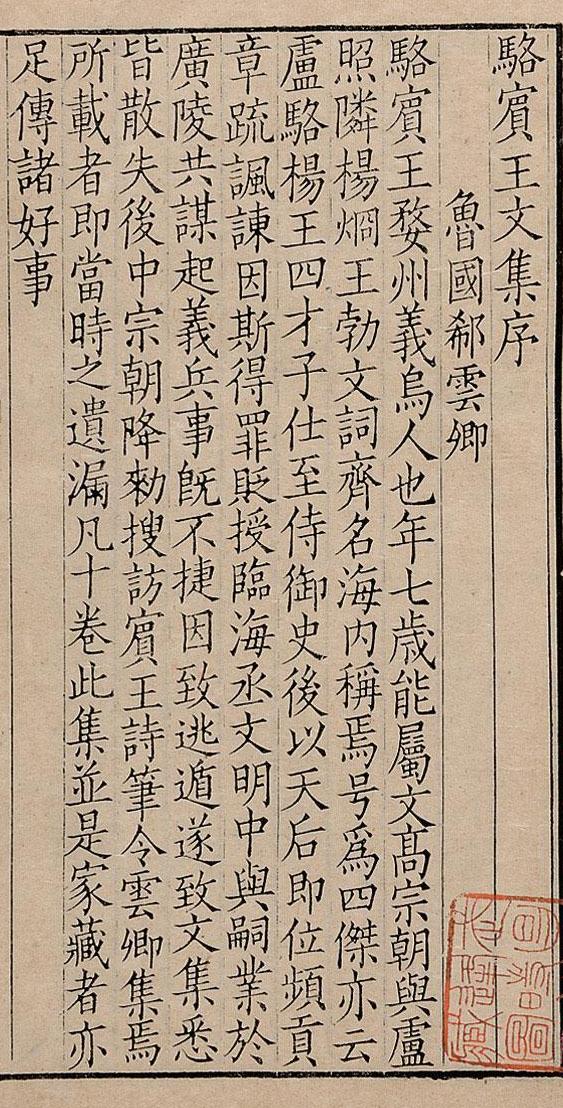 駱賓王文集序
魯國郗雲卿
駱賓王婺州義烏人也年七歳能屬文髙宗朝與盧
照隣楊烱王勃文詞齊名海内稱焉号爲四傑亦云
盧駱楊王四才子仕至侍御史後以天后即位頻貢
章疏諷諌因斯得罪貶授臨海丞文明中與嗣業於
廣陵共謀起義兵事旣不捷因致逃遁遂致文集悉
皆散失後中宗朝降勑搜訪賓王詩筆令雲卿集焉
所載者即當時之遺漏凡十卷此集並是家藏者亦
足傳諸好事